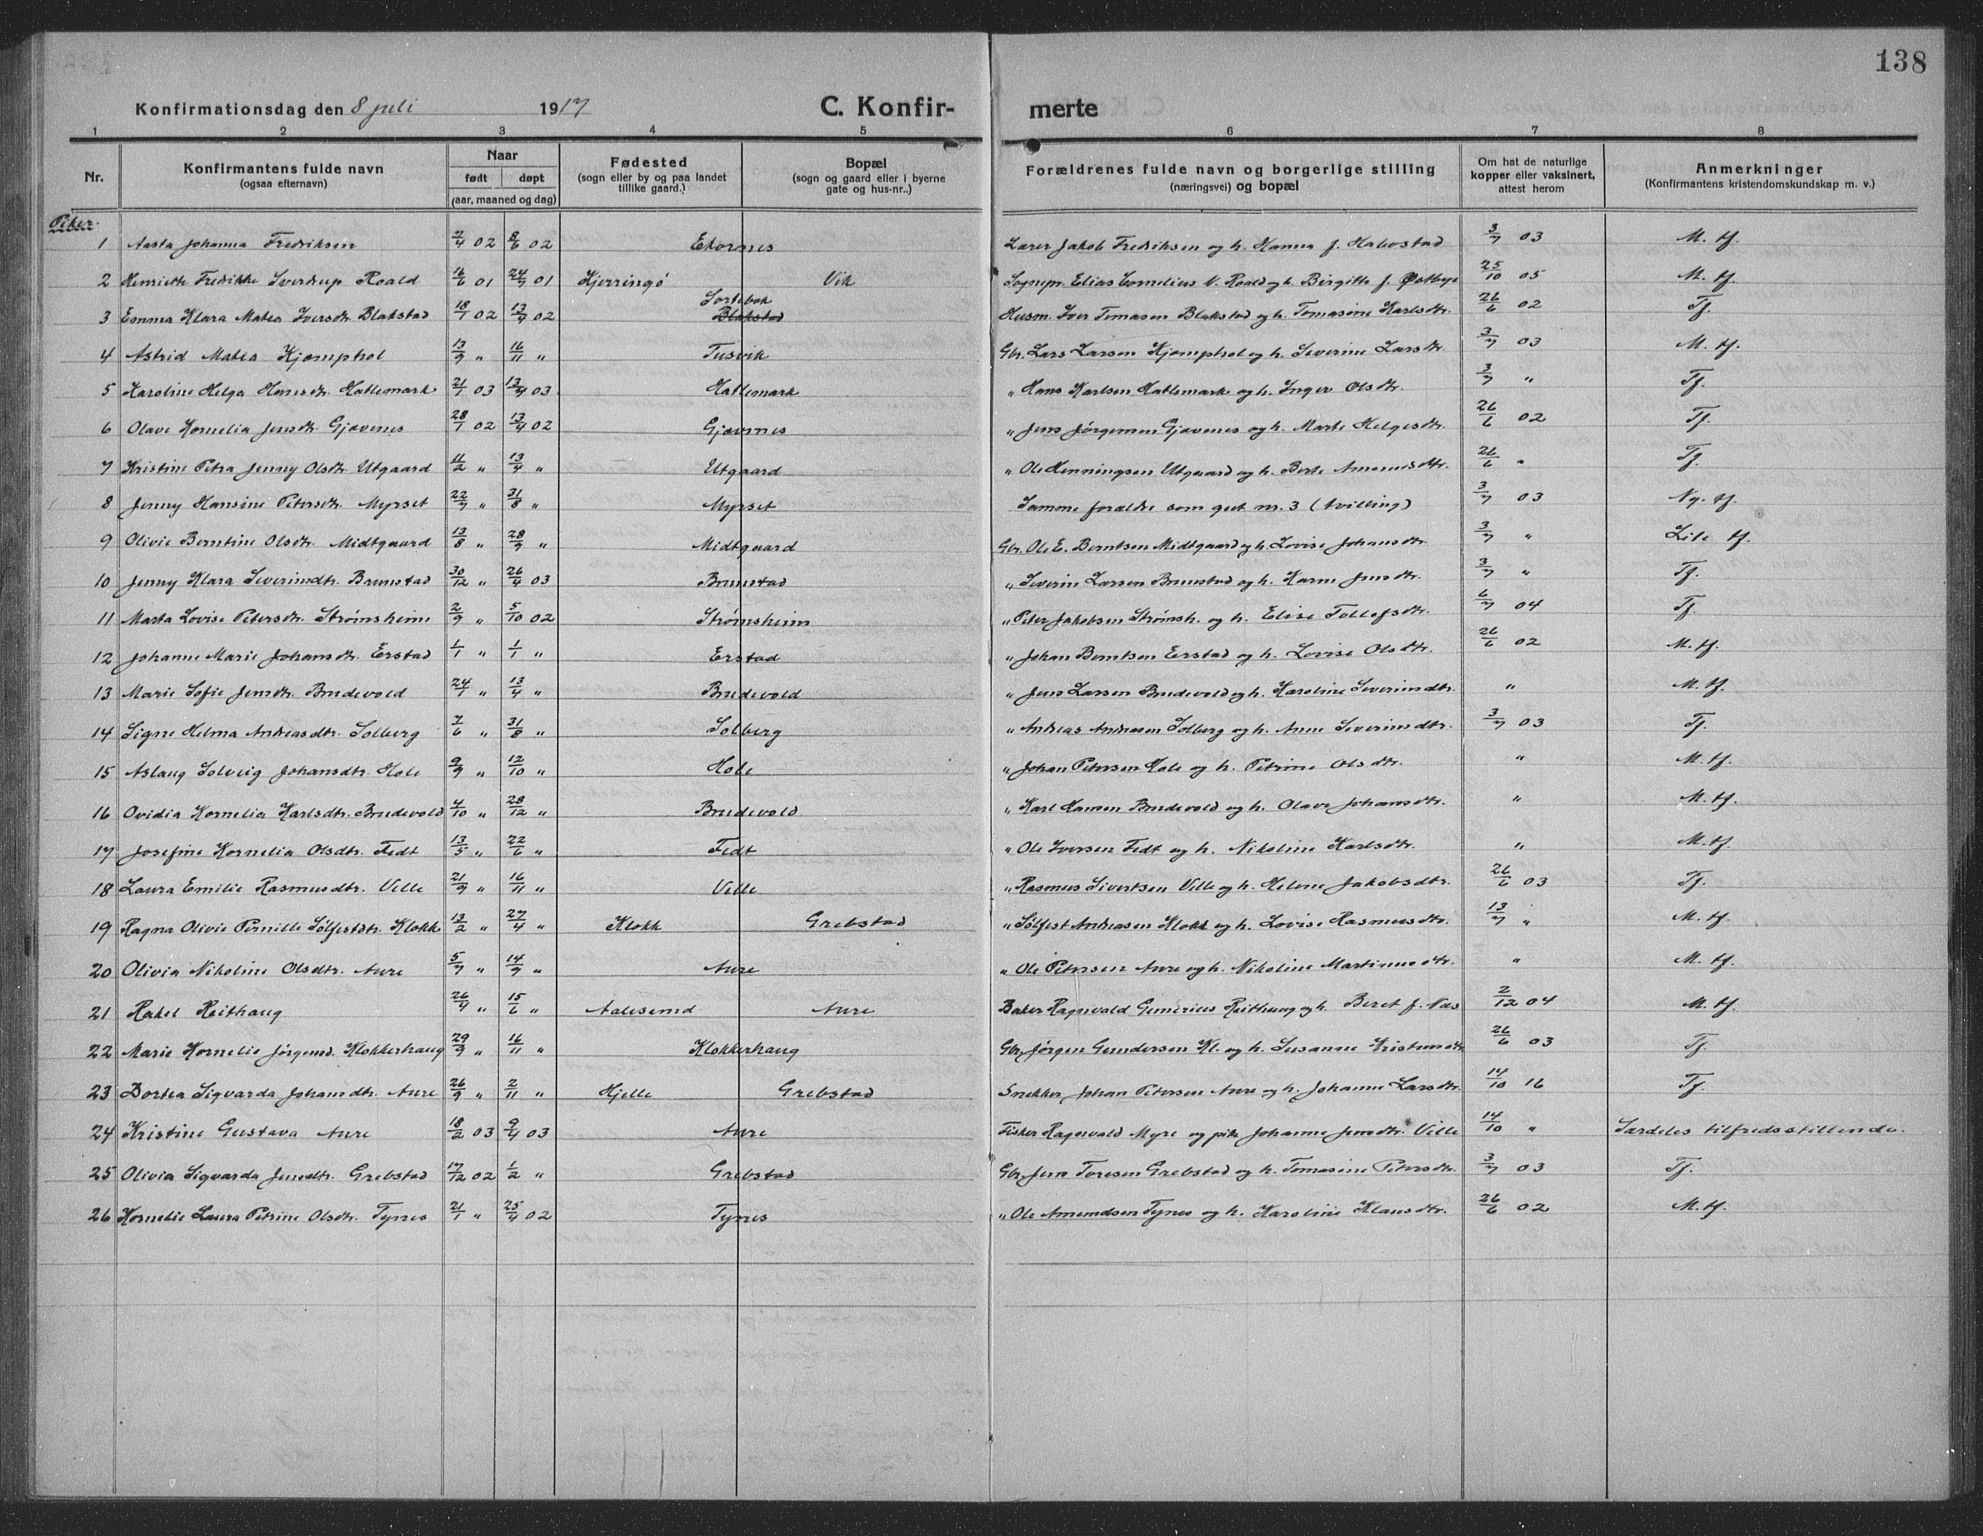 138
Konfirmationsdag den 8 juli 1917 C. Konfir- merte
1 2 3 4 5 6 7 8
Nr. Konfirmantens fulde navn (ogsaa efternavn) Naar født døpt (aar, maaned og dag) Fødested (sogn eller by og paa landet tillike gaard.) Bopæl (sogn og gaard eller i byerne gate og hus-nr..) Forældrenes fulde navn og borgerlige stilling (næringsvei) og bopæl Om hat de naturlige kopper eller vaksinert, attest herom Anmerkninger (Konfirmantens kristendomskundskap m. v.)
Piker
1 Aasta Johanna Fredriksen 2/4 02 8/6 02 Ekornes Lærer Jakob Fredriksen og h. Hanna f. Halvostad 3/7 03 M. tf.
2 Henriette Fredrikke Sverdrup Roald 16/6 01 24/7 01 Kjerringø Vik Sognepr. Elias Cornelius V. Roald og h. Birgitte f. Østbye 25/10 05 M. tf.
3 Emma Klara Matea Iversdtr. Blakstad 18/1 02 13/4 02 Sortebak Blakstad Husm. Iver Tomasen Blakstad og h. Tomasine Karlsdtr. 26/6 02 Tf.
4 Astrid Matea Kjemphol 13/9 " 16/11 " Tusvik Gbr. Lars Larsen Kjemphol og h. Severine Larsdtr. 3/7 03 M. tf.
5 Karoline Helga Hansdtr. Hatlemark 21/1 03 13/4 03 Hatlemark " Hans Karlsen Hatlemark og h. Inger Olsdtr. 3/7 " Tf.
6 Olave Kornelia Jensdtr. Gjævenes 28/1 02 13/4 02 Gjævnes " Jens Jørgensen Gjævenes og h. Marte Helgesdtr. 26/6 02 Tf.
7 Kristine Petra Jenny Olsdtr. Utgaard 11/2 " 13/4 " Utgaard " Ole Henningsen Utgaard og h. Berte Amundsdtr. 26/6 " Tf.
8 Jenny Hansine Petersdtr. Myrset 22/7 " 31/8 " Myrset Samme forældre som gut nr. 3 (tvilling) 3/7 03 Ng. tf.
9 Olivie Berntine Olsdtr. Midtgaard 13/8 " 28/9 " Midtgaard Gbr. Ole E. Berntsen Midtgaard og h. Lovise Johansdtr. 3/7 " Lite tf.
10 Jenny Klara Severinsdtr. Brunstad 30/12 " 26/4 03 Brunstad " Severin Larsen Brunstad og h. Karne Jensdtr. 3/7 " Tf.
11 Marta Lovise Petersdtr. Strømsheim 2/9 " 5/10 02 Strømsheim " Peter Jakobsen Strømsh. og h. Elise Tollefsdtr. 6/7 04 Tf.
12 Johanne Marie Johansdtr. Erstad 1/1 " 1/1 " Erstad " Johan Berntsen Erstad og h. Lovise Olsdtr. 26/6 02 M. tf.
13 Marie Sofie Jensdtr. Brudevold 24/1 " 13/4 " Brudevold " Jens Larsen Brudevold og h. Karoline Severinsdtr. " M. tf.
14 Signe Helma Andreasdtr. Solberg 7/6 " 31/8 " Solberg " Andreas Andreasen Solberg og h. Anne Severinsdtr. 3/7 03 Tf.
15 Aslaug Solveig Johansdtr. Hole 9/9 " 12/10 " Hole " Johan Petersen Hole og h. Petrine Olsdtr. " M. tf.
16 Ovidia Kornelia Karlsdtr. Brudevold 4/10 " 28/12 " Brudevold " Karl Hansen Brudevold og h. Olave Johansdtr. " M. tf.
17 Josefine Kornelia Olsdtr. Fedt 13/5 " 22/6 " Fedt " Ole Iversen Fedt og h. Nikoline Karlsdtr. " M. tf.
18 Laura Emilie Rasmusdtr. Velle 21/9 " 16/11 " Velle " Rasmus Sivertsen Velle og h. Helene Jakobsdtr. 26/6 03 Tf.
19 Ragna Olivie Pernille Sølfestdtr. Klokk 13/2 " 27/4 " Klokk Grebstad " Sølfest Andreasen Klokk og h. Lovise Rasmusdtr. 13/7 " M. tf.
20 Olivia Nikoline Olsdtr. Aure 5/7 " 14/9 " Aure " Ole Petersen Aure og h. Nikoline Martinusdtr. " M. tf.
21 Rakel Reithaug 26/4 " 15/6 " Aalesund Aure Baker Ragnvald Gunerius Reithaug og h. Beret f. Næs 2/12 04 M. tf.
22 Marie Kornelie Jørgensd. Klokkerhaug 29/9 " 16/11 " Klokkerhaug Gbr. Jørgen Gundersen Kl. og h. Susanne Kristensdtr 26/6 03 Tf.
23 Dortea Sigvarda Johansdtr. Aure 26/9 " 2/11 " Hjelle Grebstad Snekker Johan Petersen Aure og h. Johanne Larsdtr. 14/10 16 Tf.
24 Kristine Gustava Aure 18/2 03 9/4 03 Aure Fisker Ragnvald Myre og pike Johanne Jensdtr. Velle 14/10 " Særdeles tilfredsstillende.
25 Olivia Sigvarda Jensdtr. Grebstad 17/12 02 1/2 " Grebstad Gbr. Jens Toresen Grebstad og h. Tomasine Petersdtr. 3/7 03 Tf.
26 Kornelie Laura Petrine Olsdtr. Tynes 21/1 " 25/4 02 Tynes " Ole Amundsen Tynes og h. Karoline Klausdtr. 26/6 02 M. tf.